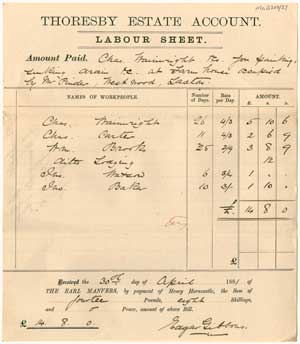 THORESBY ESTATE ACCOUNT.
LABOUR SHEET.
Amount Paid. Chas. Wainwright &c. for painting,
sinking drain &c. at Farm house occupied
by Mr Westwood,
NAMES OF WORKPEOPLE. Number of Days. Rate per Day. £ s. d.
Chas. Wainwright 26 4/3 5 10 6
Chas. Carter 11 4/3 2 6 9
Wm. Brooks 25 2/9 3 8 9
ditto Lodging 12
Jno. Watson 6 3/4 1 . .
Jno. Baker 10 3/ 1 10 .
£ 14 8 0
Received the 30th day of April 1881 of
THE EARL MANVERS, by payment of Henry Horncastle, the Sum of
fourteen Pounds, eight Shillings,
and Pence, amount of above Bill.
£ 14 8 0. Edgar Gibbons.